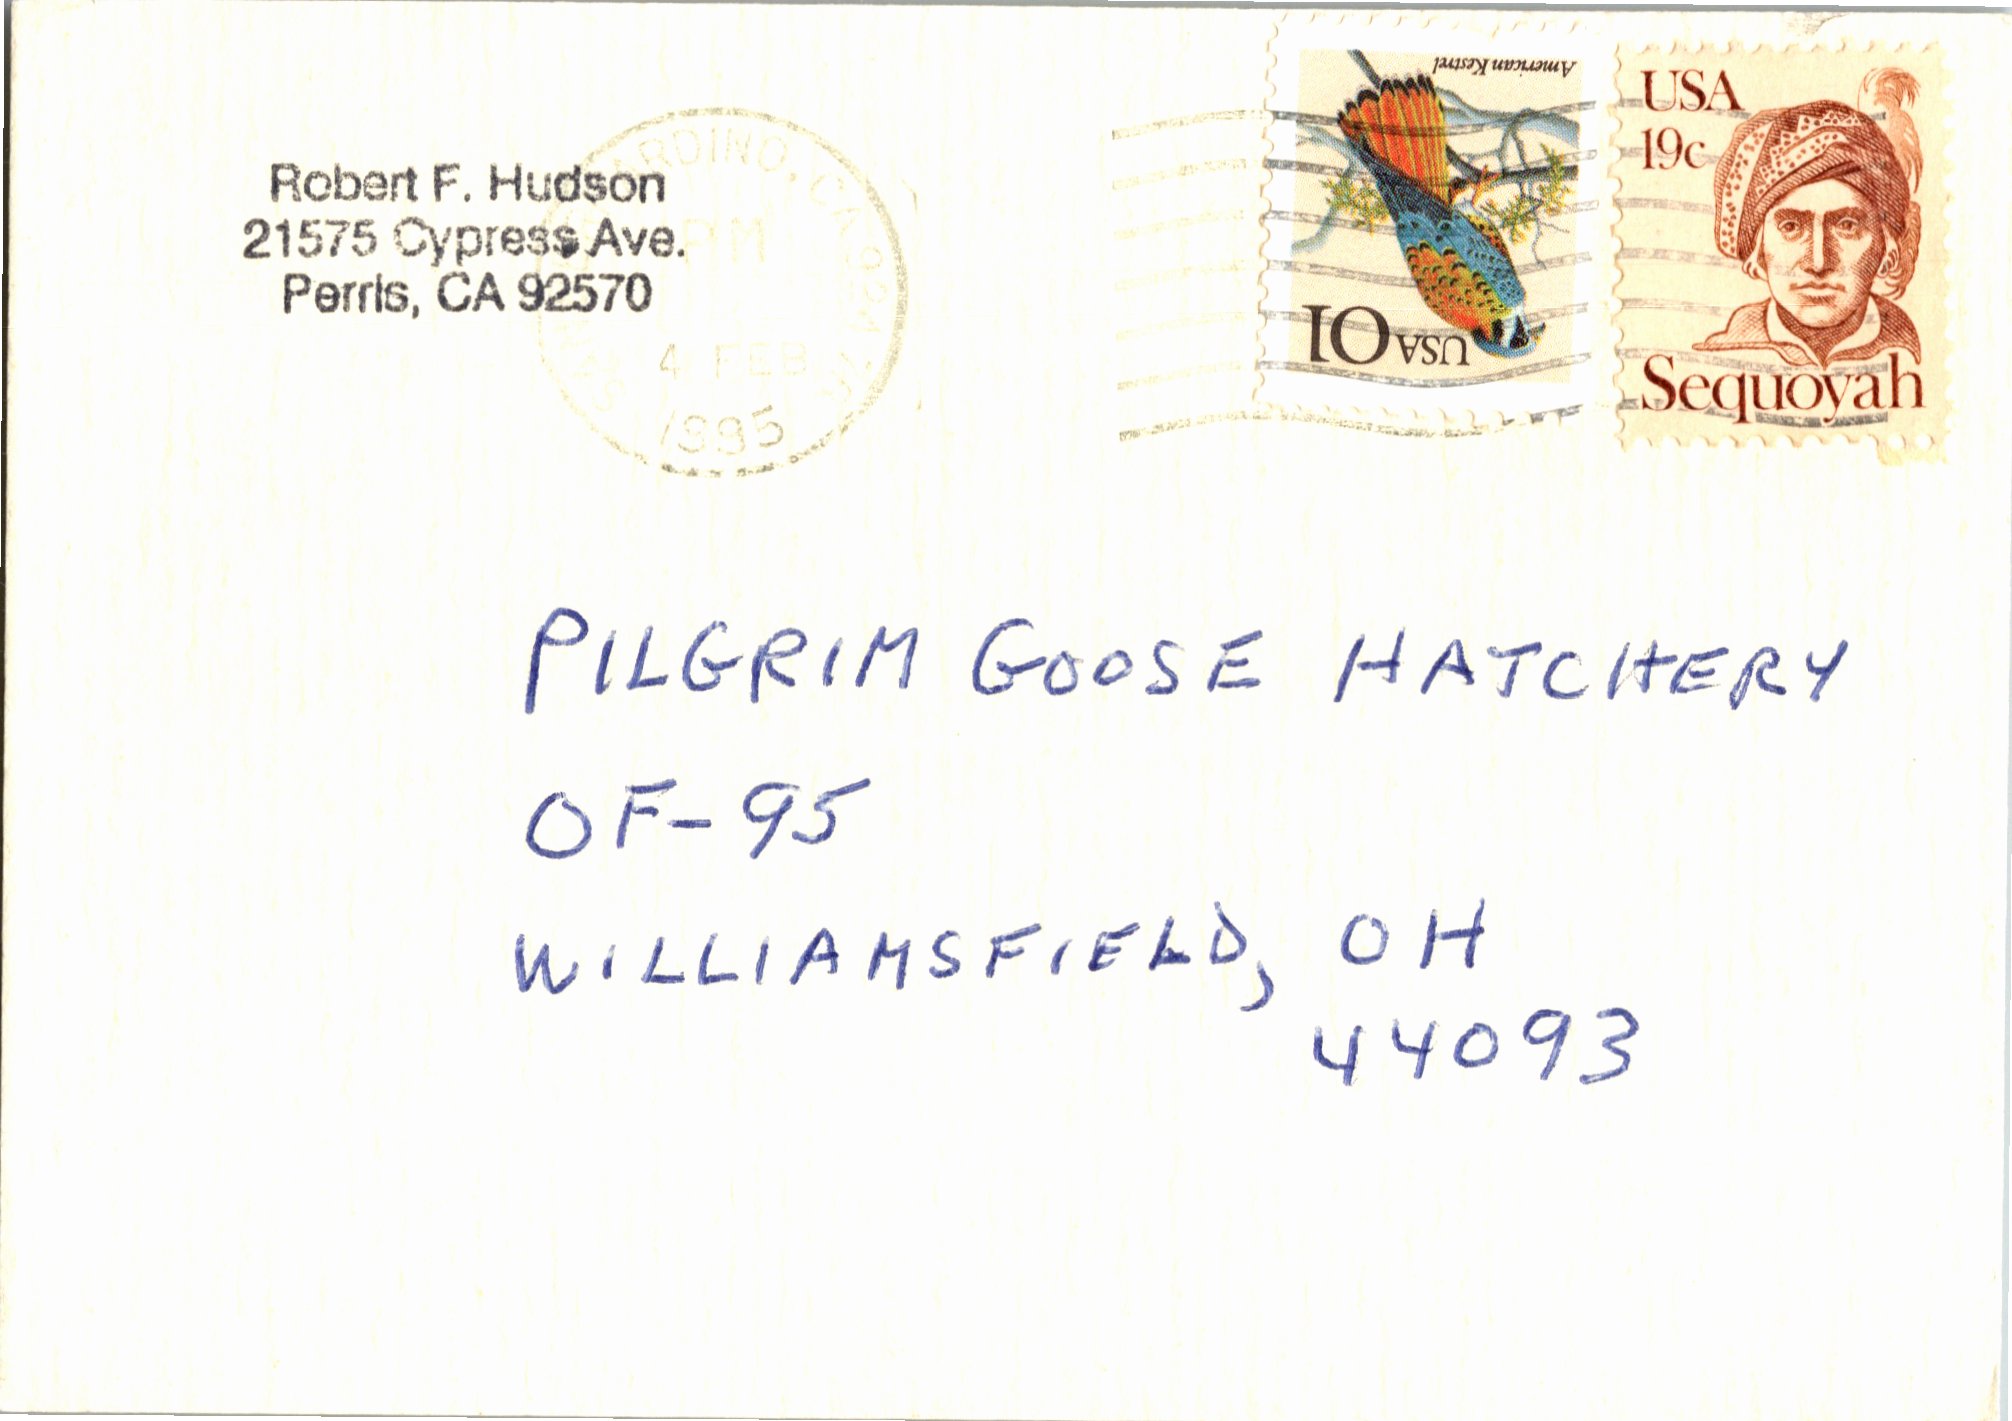 Robert F. Hudson
21575 Cypress Ave.
Perris, CA 92570
PM
4 FEB
1995
American Kestrel
10 USA
USA
19c
Sequoyah
PILGRIM GOOSE HATCHERY
OF-95
WILLIAMSFIELD, OH
44093